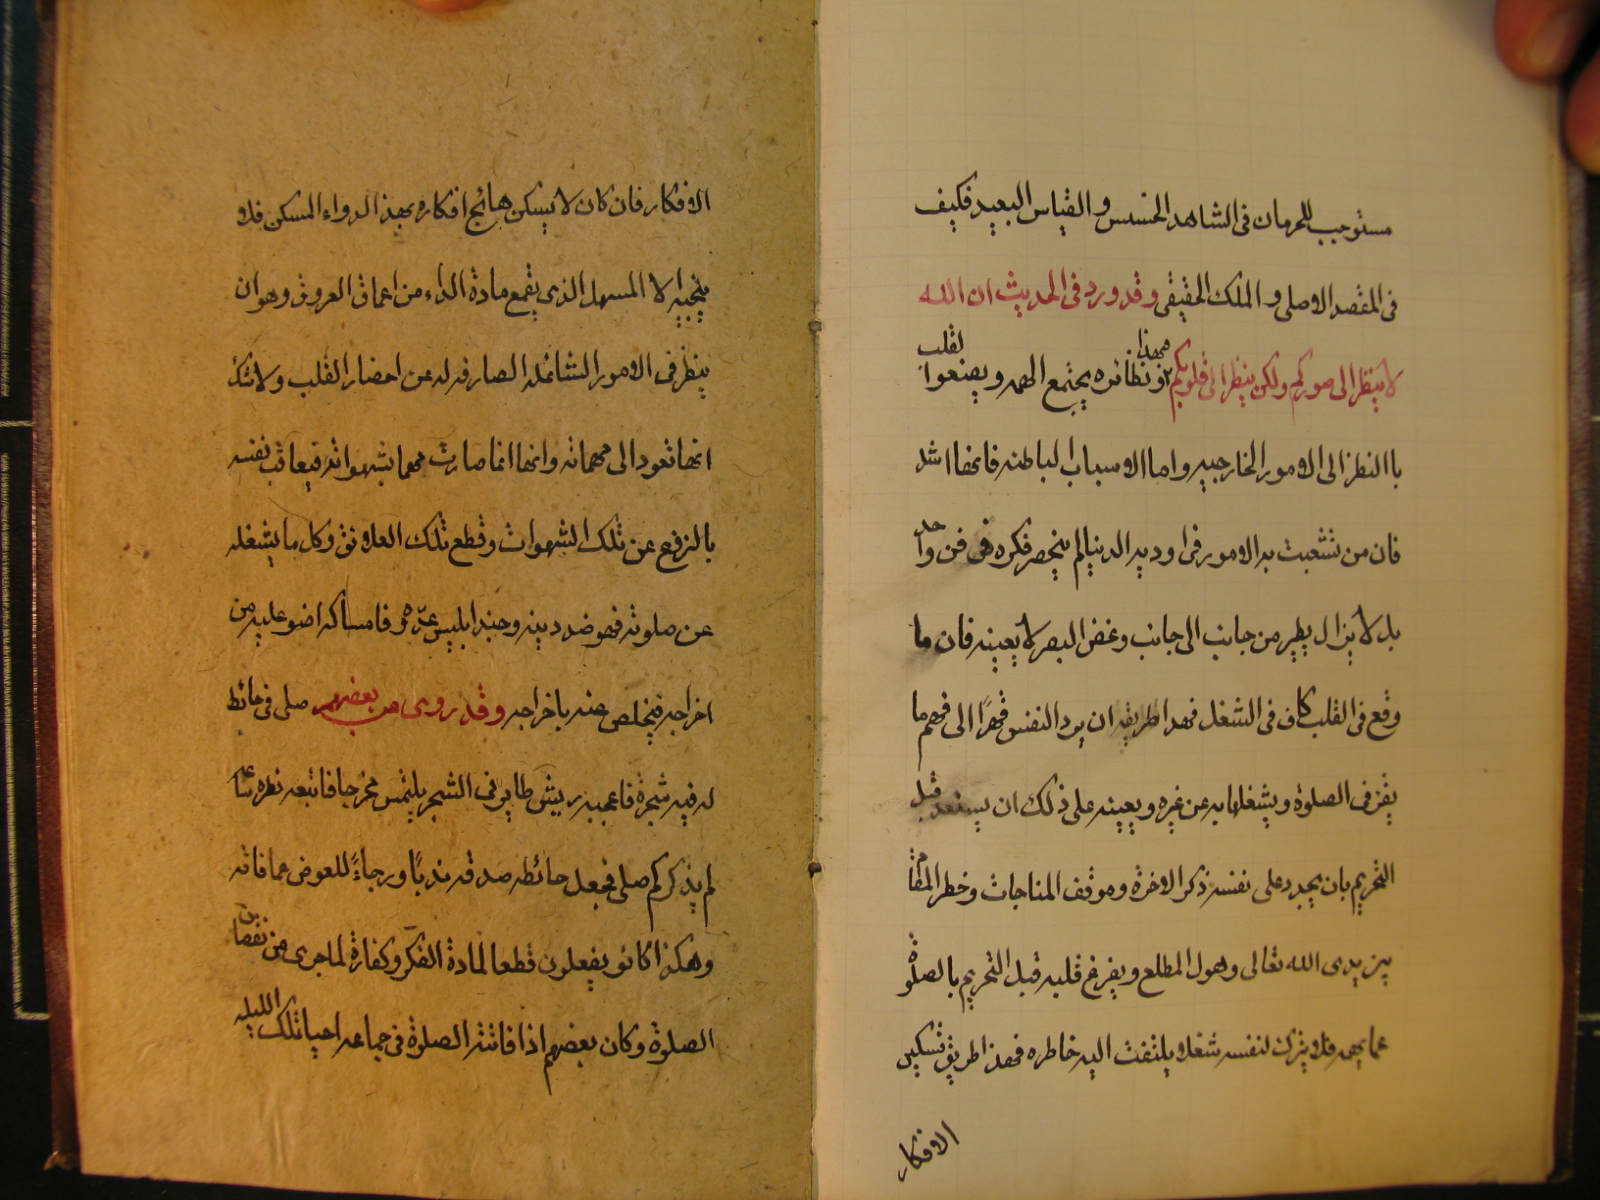 مستوجب للحرمان فى الشاهد الخسيس و القياس البعيد فكيف
فى المقصد الاصلى و الملك الحقيقى وقد ورد فى الحديث ان الله
لا ينظر الى صوركم ولكن ينظر الى قلوبكم فبهذا و نظائره يجتمع الهمه و يصنعوا لقلب
باالنظر الى الامور الخارجيه و اما الاسباب الباطنه فانها اشد
فان من تشعبت به الامور فى اوديه الدنيا لم ينحصر فكره فى فن واحد
بل لا يزال يطير من جانب الى جانب و غض البصر لا يعينه فان ما
وقع فى القلب كاف فى الشغل فهذا طريقه ان يرد النفس قهرًا الى فهم ما
يقرء فى الصلوة و يشغلها به عن غيره و يعينه على ذلك ان يستعد قبل
التحريم بان يجدد على نفسه ذكر الاخرة و موقف المناجات و خطر المقام
بين يدى الله تعالى و هول المطلع و يفرغ قلبه قبل التحريم بالصلوة
عما يهمه فلا يترك لنفسه شغلا يلتفت اليه خاطره فهذا طريق تسكين
الافكار
الافكار فان كان لا يسكن هائج افكاره بهذا الدواء المسكن فلا
ينجيه الا المسهل الذى يقمع مادة الداء من اعماق العروق و هو ان
ينظر فى الامور الشاغله الصارفه له عن احضار القلب و لا شك
انها تعود الى مهماته و انها انما صارت مهما بشهواته فيعاقب نفسه
بالنزوع عن تلك الشهوات و قطع تلك العلائق و كل ما يشغله
عن صلوته فهو ضد دينه و جند ابليس عدّوه فامساكه اضو عليه من
اخراجه فيتخلص عنه باخراجه و قد روى عن بعضهم صلى فى حائط
له فيه شجرة فاعجبه ريش طاير فى الشجر يلتمس مخرجا فاتبعه نظره ساعة
لم يذكر كم صلى فجعل حائطه صدقه ندبًا و رجاءً للعوض عما فاته
و هكذا كانو يفعلون قطعا لمادة الفكر و كفارة لما جرى من نقصان
الصلوة و كان بعضهم اذا فاتته الصلوة فى جماعه احيا تلك الليله